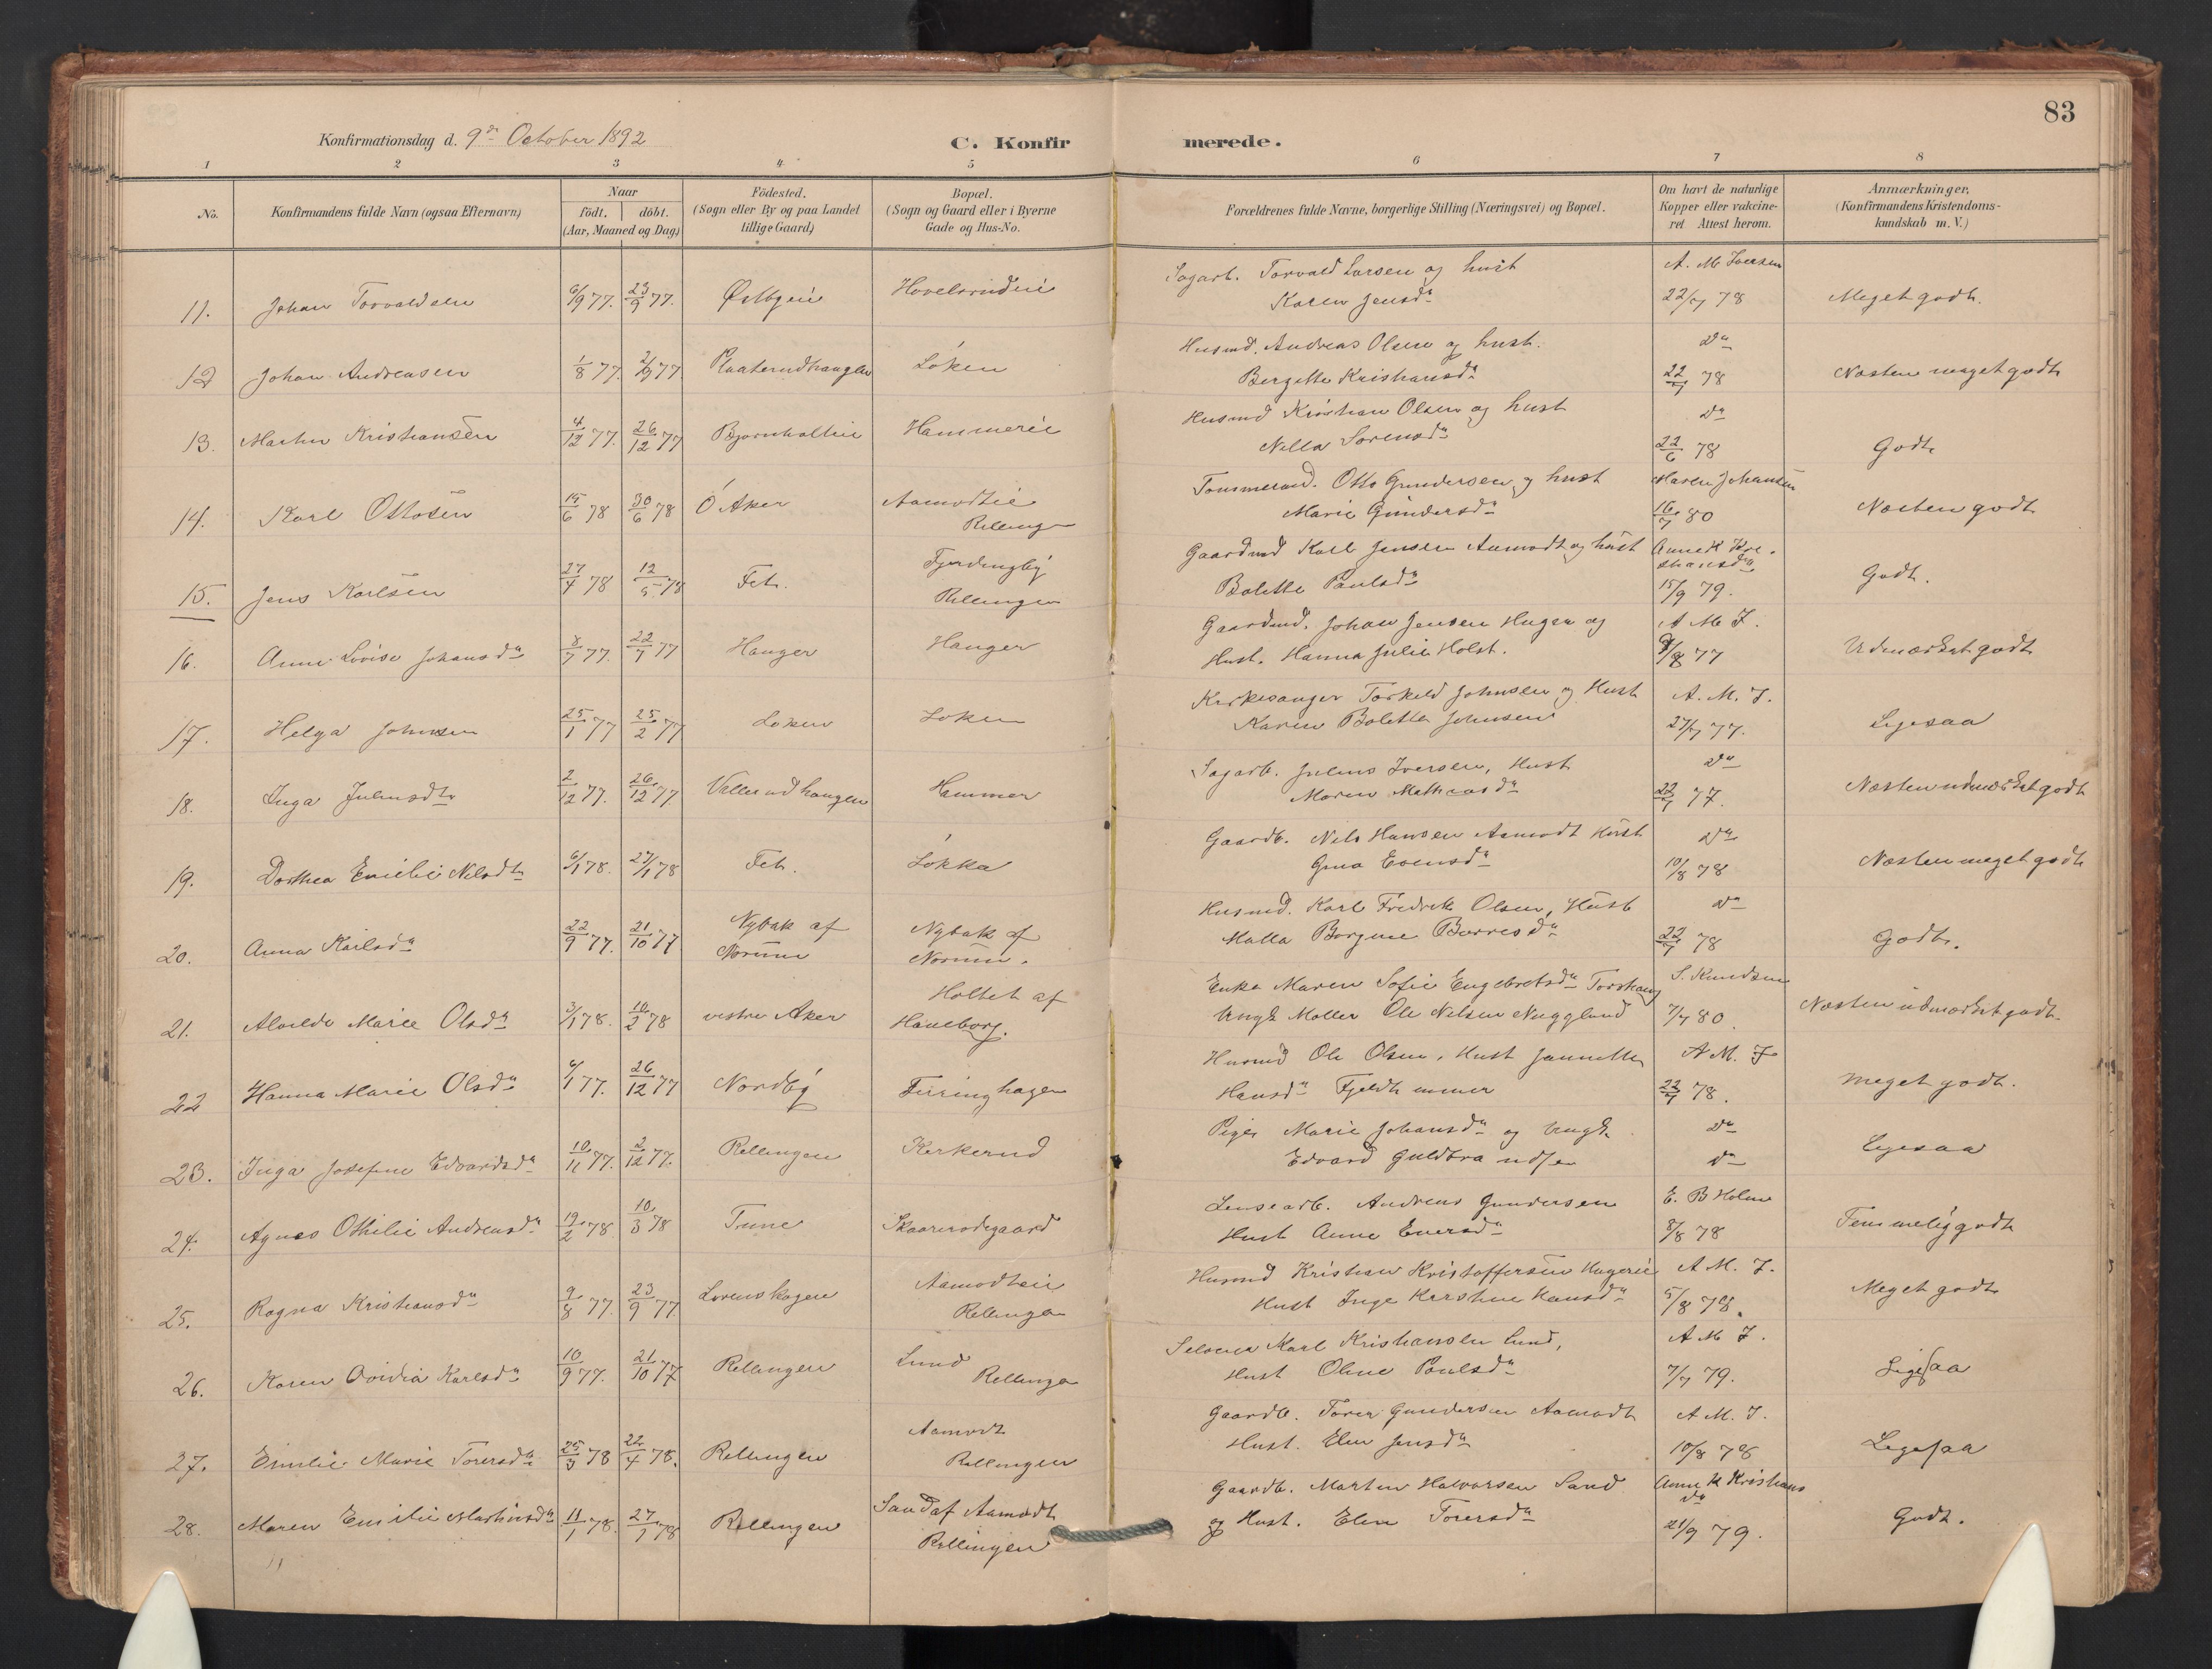 83
Konfirmationsdag d. 9de October 1892
C. Konfirmerede.
1 2 3 4 5 6 7 8
No.
Konfirmandens fulde Navn (ogsaa Efternavn)
Naar
födt. döbt.
(Aar, Maaned og Dag)
Födested.
(Sogn eller By og paa Landet
tillige Gaard)
Bopæl.
(Sogn og Gaard eller i Byerne
Gade og Hus-No.
Forældrenes fulde Navne, borgerlige Stilling (Næringsvei) og Bopæl.
Om havt de naturlige
Kopper eller vakcine-
ret Attest herom.
Anmærkninger,
(Konfirmandens Kristendoms-
kundskab m. V.)
11. Johan Torvaldsen 6/9 77. 23/9 77. Østbyeie Hovelsrudeie Sagarb. Torvald Larsen og hust
Karen Jensda A. M Iversen 22/7 78 Meget godt.
12 Johan Andreasen 1/8 77. 2/9 77 Løken Husmd. Andreas Olsen og hust.
Bergitte Kristiansda Do 22/7 78 Næsten meget godt
13. Martin Kristiansen 4/12 77. 26/12 77 Bjørnholteie Hammereie Husmd Kristian Olsen og hust
Nella Sørensda Do 22/6 78 Godt
14. Karl Ottosen 15/6 78 30/6 78 Ö Aker Aamodteie
Rellingen Tømmermd. Otto Gundersen og hust
Marie Gundersda Maren Johansen 16/7 80 Næsten godt
15. Jens Karlsen 27/4 78 12/5 78 Fet. Fjerdingby
Rellingen Gaardmd Karl Jensen Aamodt og hust
Bolette Paulsda Anne K Kri-
stiansda 15/9 79. Godt.
16. Anne Lovise Johansda 8/7 77. 22/7 77 Hauger Hauger Gaardmd. Johan Jensen Huger og
Hust. Hanna Julie Holst. A M I. 9/8 77 Udmærket godt
17. Helga Johnsen 25/1 77 25/2 77 Løken Løken Kirkesanger Torkild Johnsen og Hust
Karen Bolette Johnsen A. M. I. 27/7 77. Ligesaa
18. Inga Juliusdt 2/12 77. 26/12 77 Vallerudhaugen Hammer Sagarb. Julius Iversen, Hust
Maren Mathiasda Do 22/7 77. Næsten udmærket godt
19. Dorthea Emilie Nilsdt 6/1 78. 27/1 78 Fet. Løkka Gaardb. Nils Hansen Aamodt Hust
Gina Evensda Do 10/8 78 Næsten meget godt
20. Anna Karlsda 22/9 77. 21/10 77 Nybak af
Norum Nybak af
Norum. Husmd. Karl Fredrik Olsen, Hust
Malla Borgine Børresda Do 22/7 78 Godt.
21. Alvilde Marie Olsda 3/1 78. 10/2 78 vestre Aker Holtet af
Haneborg. Enke Maren Sofie Engebretsda Torshaug
Ungk Møller Ole Nilsen Nugglund S. Knudsen 7/7 80. Næsten udmærket godt.
22 Hanna Marie Olsda 6/1 77. 26/12 77 Nordby Husmd Ole Olsen, Hust Jannette
Hansda A M. I 22/7 78. Meget godt.
23. Inga Josefine Edvardsda 10/11 77. 2/12 77. Rellingen Kirkerud Pige Marie Johansda og Ungk.
Edvard Guldbrandsen Do
Do Ligesaa
24. Agnes Othilie Andreasda 19/2 78. 10/3 78 Tune Skaarersødegaard Lensearb. Andreas Gundersen
Hust Anne Eversda E. B Holm 8/8 78 Temmelig godt
25. Ragna Kristiansda 9/8 77. 23/9 77. Lørenskogen Aamodteie
Rellingen Husmd Kristian Kristoffersen Hugerie
Hust Inge Kirstine Hansda A M. I. 5/8 78. Meget godt
26. Karen Ovidia Karlsda 10/9 77. 21/10 77 Rellingen Lund
Rellingen Selveier Karl Kristiansen Lund,
Hust Oline Paulsda A M I. 7/7 79. Ligesaa
27. Emilie Marie Torersda 25/3 78 22/4 78. Rellingen Aamodt
Rellingen Gaardb. Torer Gundersen Aamodt
Hust. Elen Jensda A M. I. 10/8 78 Ligesaa
28. Maren Emilie Martinsda 11/1 78. 27/1 78 Rellingen Sand af Aamodt
Rellingen Gaardb. Martin Halvorsen Sand
og Hust. Elen Torersda Anne K Kristians
da 21/9 79. Godt.